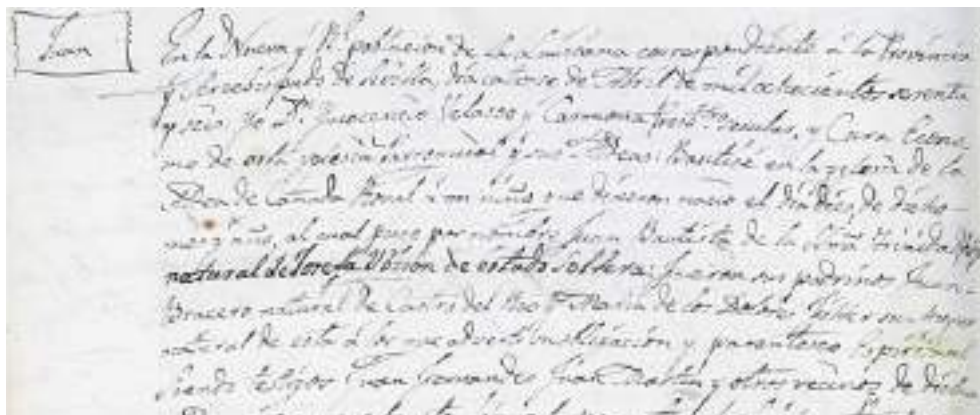 Juan
En la Nueva y Rl. poblacion de la Luisiana correspondiente á la Provincia
y Arzobispado de Sevilla, dia catorce de Abril de mil ochocientos sesenta
y seis, yo Dn. Inocencio Velasco y Carmona Presbtro. secular, y Cura Econo
mo de esta Iglesia Parroquial y sus Aldeas Bautizé en la Iglesia de la
Aldea de Cañada Rosal á un niño que dijeron nacio el dia diez, de dicho
mes y año, al cual puse por nombre Juan Bautista de la Sma Trinidad
natural de Josefa de estado soltera: fueron sus padrinos Juan
natural de Castro del Rio y Maria de los Dolores su
natural de esta á los que advertí su obligación y parentesco Espiritual
siendo testigos Juan Fernandez Juan Martin y otros vecinos de dicha